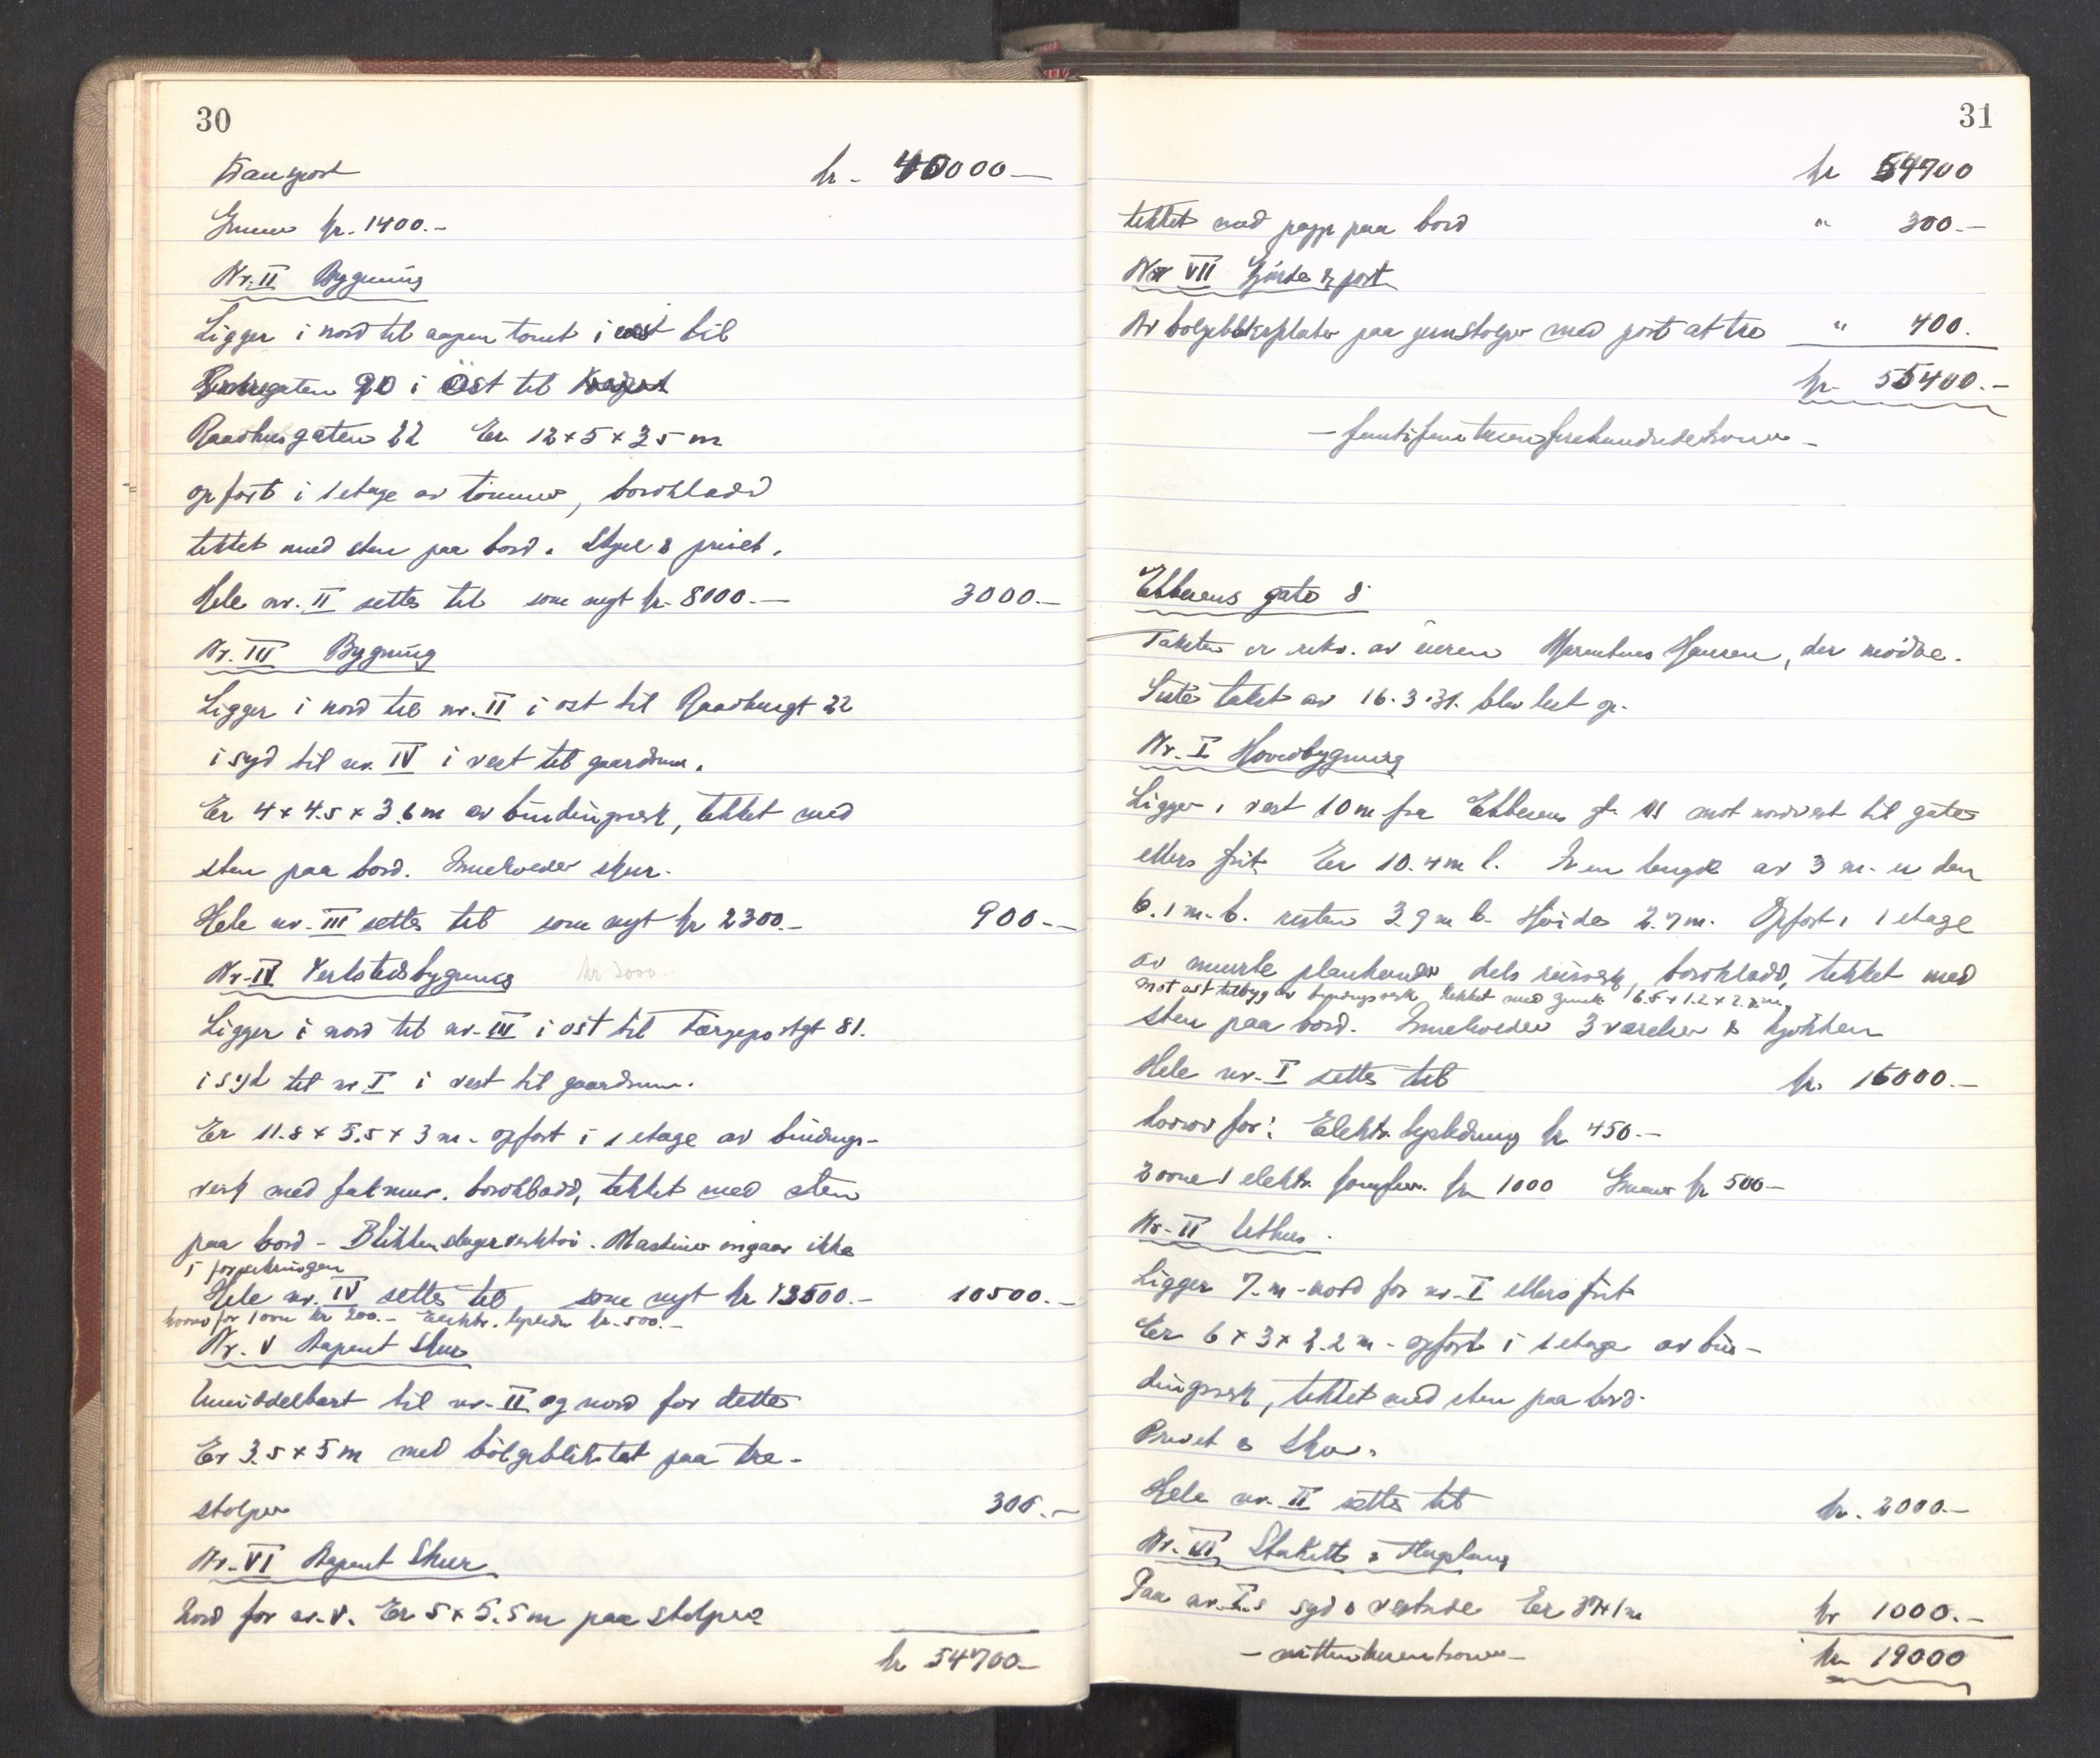 30
Transport kr - 40000.—
Grunn kr. 1400.-
Nr. II Bygning
Ligger i nord til aapen tomt i vest til
gaten 20 i Öst til
Raadhusgaten 22 Er 12 x 5 x 3.5 m
opfört i 1 etage av tömmer, bordkladd
tekket med sten paa bord. Skjul & privet.
Hele nr. II settes til som nyt kr. 8000.— 3000.—
Nr. III Bygning
Ligger i nord til nr. II i ost til Raadhusgt 22
i syd til nr. IV i vest til gaardsrum.
Er 4 x 4.5 x 3.6 m av bindingsverk, tekket med
sten paa bord. Inneholder skur.
Hele nr. III settes til som nyt kr 2300.— 900.—
Nr. IV Verkstedsbygning kr 3000.-
Ligger i nord til nr. III i ost til Færgeportgt 81.
i syd til nr I i vest til gaardsrum.
Er 11.8 x 5.5 x 3 m - opfört i 1 etage av bindings-
verk med halvmur. bordkladd, tekket med sten
paa bord - Blikkenslagerverksted. Maskiner inngaar ikke
i forsikringen
Hele nr. IV settes til som nyt kr 13500.— 10500.—
hvorav for 1 ovn kr 200.— Elektr. lysledn kr. 500.—
Nr. V Aapent Skur
Umiddelbart til nr. II og nord for dette
Er 3.5 x 5 m med bölgebliktak paa tre-
stolper 300.—
Nr. VI Aapent Skur
Nord for nr. V. Er 5 x 5.5 m paa stolper
kr 54700—
31
kr 54700
tekket med papp paa bord " 300.—
Nr VII Gjerde & port
Av bolgeblikkplater paa jernstolper med port at tre " 400.
kr. 55400.—
— femtifemtusenfirehundredekroner —
Ebbesens gate 8
Taksten er rekv. av eieren Hansen, der mödte.
Siste takst av 16.3.31. blev lest op.
Nr. I Hovedbygning
Ligger i vest 10 m fra Ebbesens gt mot nordvest til gaten
ellers frit. Er 10.4 m l. I en lengde av 3 m. er den
6.1 m. b. resten 3.9 m b. Höide 2.7 m. Opfört i 1 etage
av murte plankever dels reisverk, bordkladd, tekket med
mot ost tilbygg av bindingsverk tekket med zink 6.5 x 1.2 x 2.2 m
sten paa bord. Inneholder 3 værelser & kjökken
Hele nr. I settes til kr. 16000.—
hvorav for: Elektr. lysledning kr 450.—
2 ovne 1 elektr. komfyr. kr 1000 Grunn kr 500—
Nr. II Uthus.
Ligger 7 m - nord for nr. I ellers frit
Er 6 x 3 x 2.2 m - opfört i 1 etage av bin-
dingsverk, tekket med sten paa bord.
Privet & Skur.
Hele nr. II settes til kr. 2000.—
Nr. III Stakitt & Flagstang
Paa nr. I.s syd & vestside Er 37 x 1 m kr 1000.—
— nittentusenkroner — kr 19000